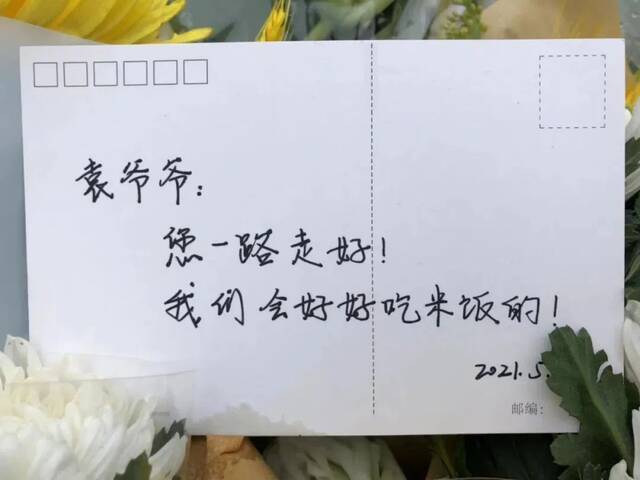 袁爷爷：
您一路走好！
我们会好好吃米饭的！
2021.5.
邮编：